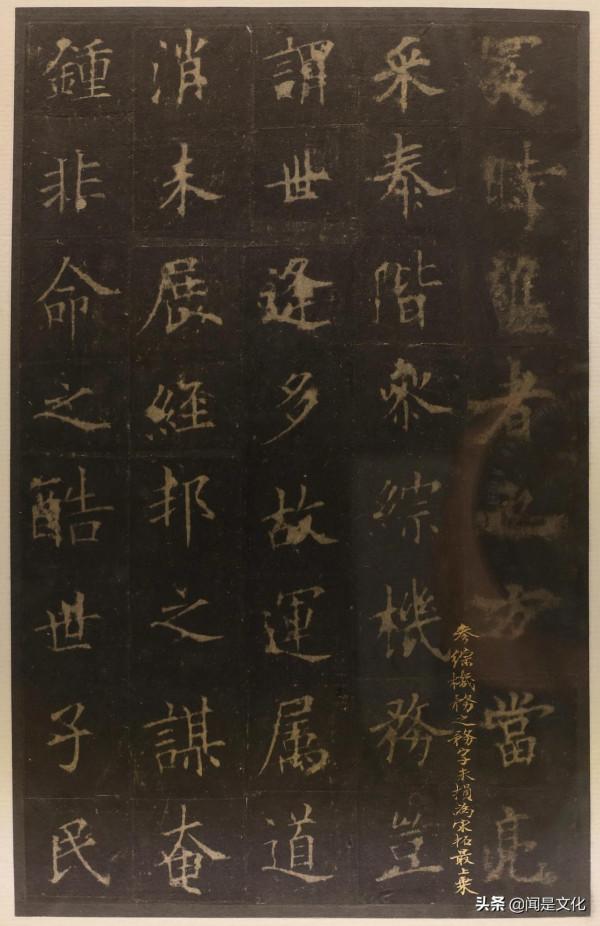 冕時儁者也方當亮
采泰階叅綜機務豈
謂世逢多故運属道
消未展經邦之謀奄
鍾非命之酷世子民
參綜機務之務字未損為宋拓最上乘
头条 @闻是文化